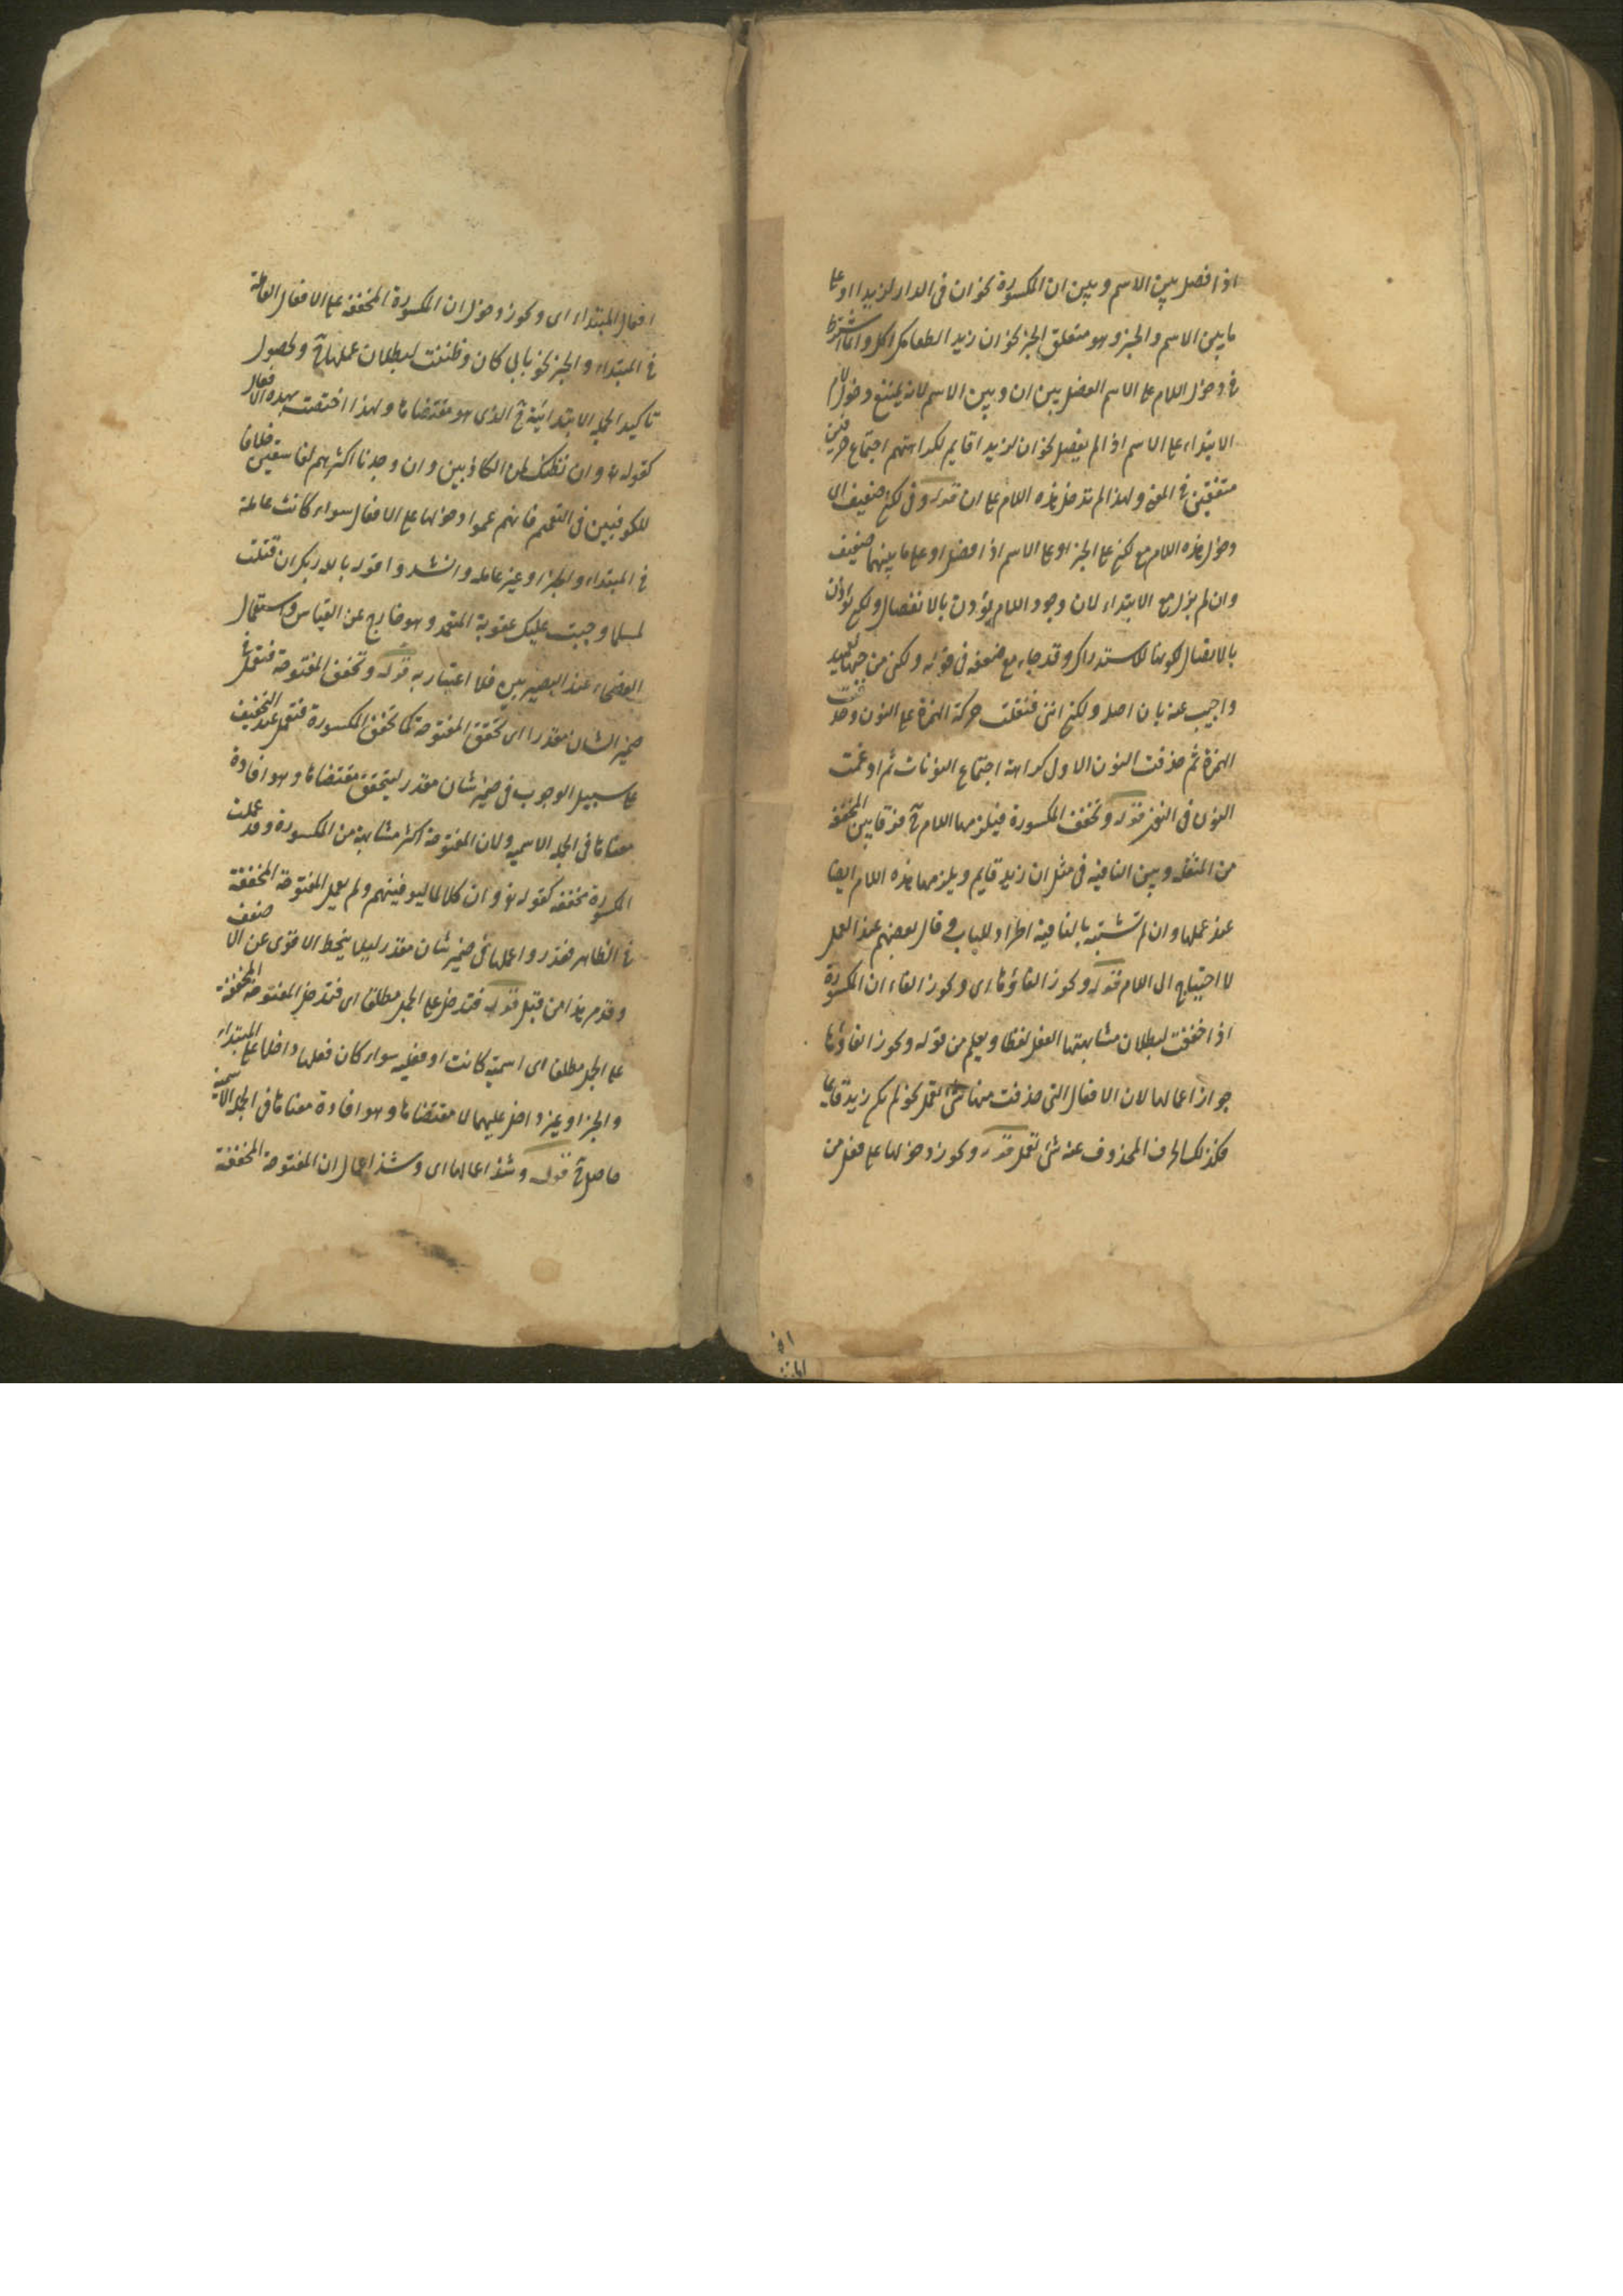 اذا فصل بين الاسم وبين ان المكسورة نحو ان فى الدار لزيدا او على
ما بين الاسم والخبر وهو متعلق الخبر نحو ان زيدا لطعامك اكل وانما اشترط
فى دخول اللام على الاسم الفصل بين ان وبين الاسم لانه يمتنع دخول لام
الابتداء على الاسم اذا لم يفصل نحو ان لزيدا قايم لكراهتهم اجتماع حرفين
متفقين فى المعنى ولهذا لم تدخل هذه اللام على ان قوله وفى لكن ضعيف اى
دخول هذه اللام مع لكن على الخبر او على الاسم اذا فصل او على ما بينهما ضعيف
وان لم يزل مع الابتداء لان وجود اللام يؤذن بالانفصال ولكن يؤذن
بالاتصال لكونها للاستدراك وقد جاء مع ضعفه فى قوله ولكنى من حبها لعميد
واجيب عنه بان اصله ولكن اننى فنقلت حركة الهمزة على النون وحذفت
الهمزة ثم حذفت النون الاولى كراهة اجتماع النونات ثم ادغمت
النون فى النون قوله وتخفف المكسورة فيلزمها اللام ح فرقا بين المخففة
من المثقلة وبين النافية فى مثل ان زيد قايم ويلزمها هذه اللام ايضا
عند عملها وان لم تشتبه بالنافية اطرادا للباب وقال بعضهم عند العمل
لا احتياج الى اللام قوله ويجوز الغاؤها اى ويجوز الغاء ان المكسورة
اذا خففت لبطلان مشابهتها الفعل لفظا ويعلم من قوله ويجوز الغاؤها
جواز اعمالها لان الافعال التى حذفت منها شئ تعمل نحو لم يك زيد قايما
فكذلك الحرف المحذوف عنه شئ تعمل قوله ويجوز دخولها على فعل من
افعال المبتداء اى ويجوز دخول ان المكسورة المخففة على الافعال العاملة
فى المبتداء والخبر نحو بابى كان وظننت لبطلان عملها ح ولحصول
تاكيد الجملة الابتدائية ح الذى هو مقتضاها ولهذا اختصت بهذه الافعال
كقوله تع وان نظنك لمن الكاذبين وان وجدنا اكثرهم لفاسقين خلافا
للكوفيين فى التعميم فانهم عمموا دخولها على الافعال سواء كانت عاملة
فى المبتداء والخبر او غير عاملة وانشدوا قوله بالله ربك ان قتلت
لمسلما وجبت عليك عقوبة المتعمد وهو خارج عن القياس واستعمال
الفصحاء عند البصريين فلا اعتبار به قوله وتخفف المفتوحة فتعمل فى
ضمير الشان مقدرا اى تخفف المفتوحة كما تخفف المكسورة فتعمل عند التخفيف
على سبيل الوجوب فى ضمير شان مقدر ليتحقق مقتضاها وهو افادة
معناها فى الجملة الاسمية ولان المفتوحة اكثر مشابهة من المكسورة وقد عملت
المكسورة مخففة كقوله تع وان كلا لما ليوفينهم ولم يعمل المفتوحة المخففة
فى الظاهر فقدروا عملها فى ضمير شان مقدر ليلا ينحط الاقوى عن الاضعف
وقد مر هذا من قبل قوله فتدخل على الجمل مطلقا اى فتدخل المفتوحة المخففة
على الجمل مطلقا اى اسمية كانت او فعلية سواء كان فعلها داخلا على المبتداء
والخبر او غير داخل عليهما لا مقتضاها وهو افادة معناها فى الجملة الاسمية
حاصل ح قوله وشذ اعمالها اى وشذ اعمال ان المفتوحة المخففة